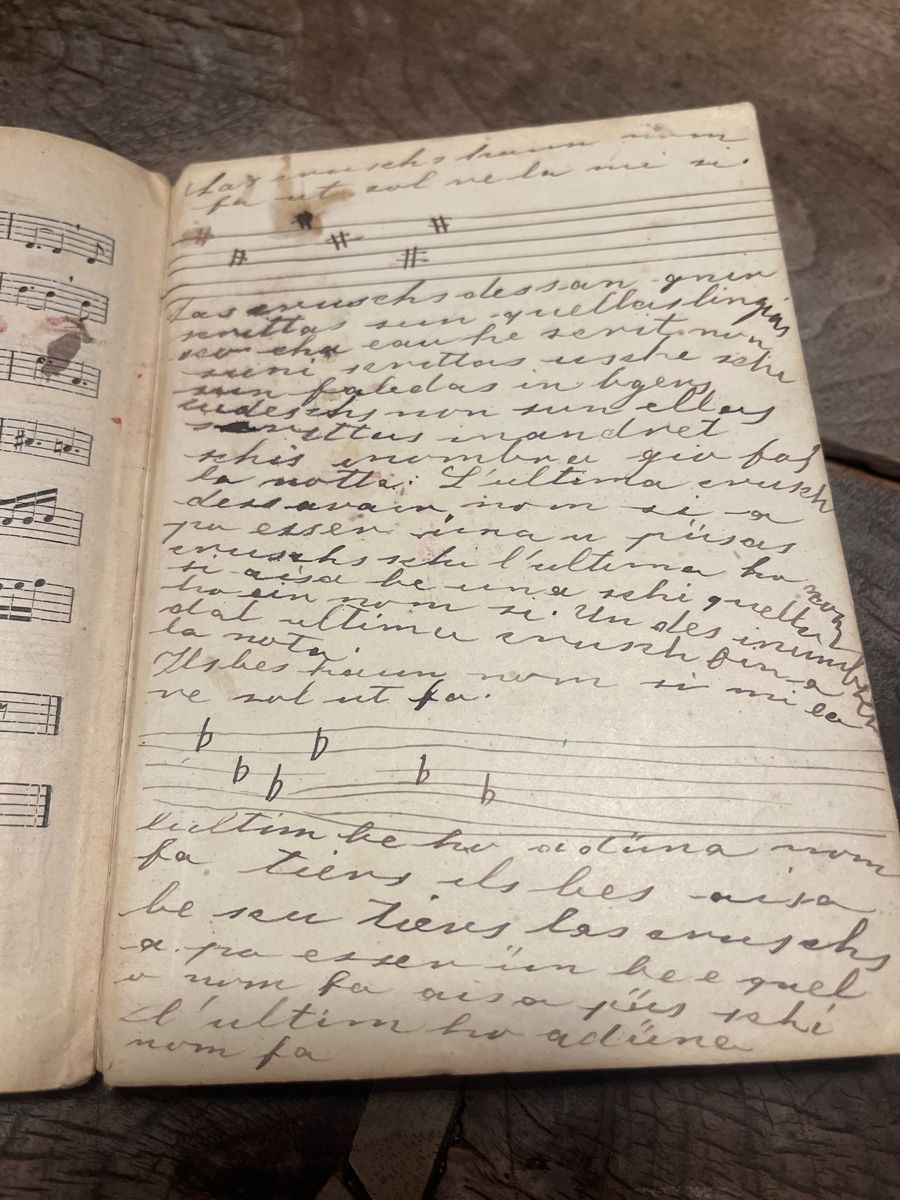 Las cruschs haun nom
fa ut sol re la mi si.
Las cruschs dessan gnir
scrittas sun quellas lingias
sco cha eau he scrit non
suni scrittas usche schi
sun faledas in bgers
cudeschs non sun ellas
scrittas inandret
schis inombra gio fos
la notta: L'ultima crusch
dess avair nom si - a
po esser üna u püsas
cruschs schi l'ultima ho nom
si aisa be una schi quella
ho ein nom si. Un des inumbrer
dal ultima crusch fin a
la nota.
Ils bes haun nom si mi la
re sol ut fa.
l'ultim be ho adüna nom
fa tiers ils bes aisa
be scu tiers las cruschs
a po esser ün be e quel
o nom fa aisa püs schi
l'ultim ho adüna
nom fa